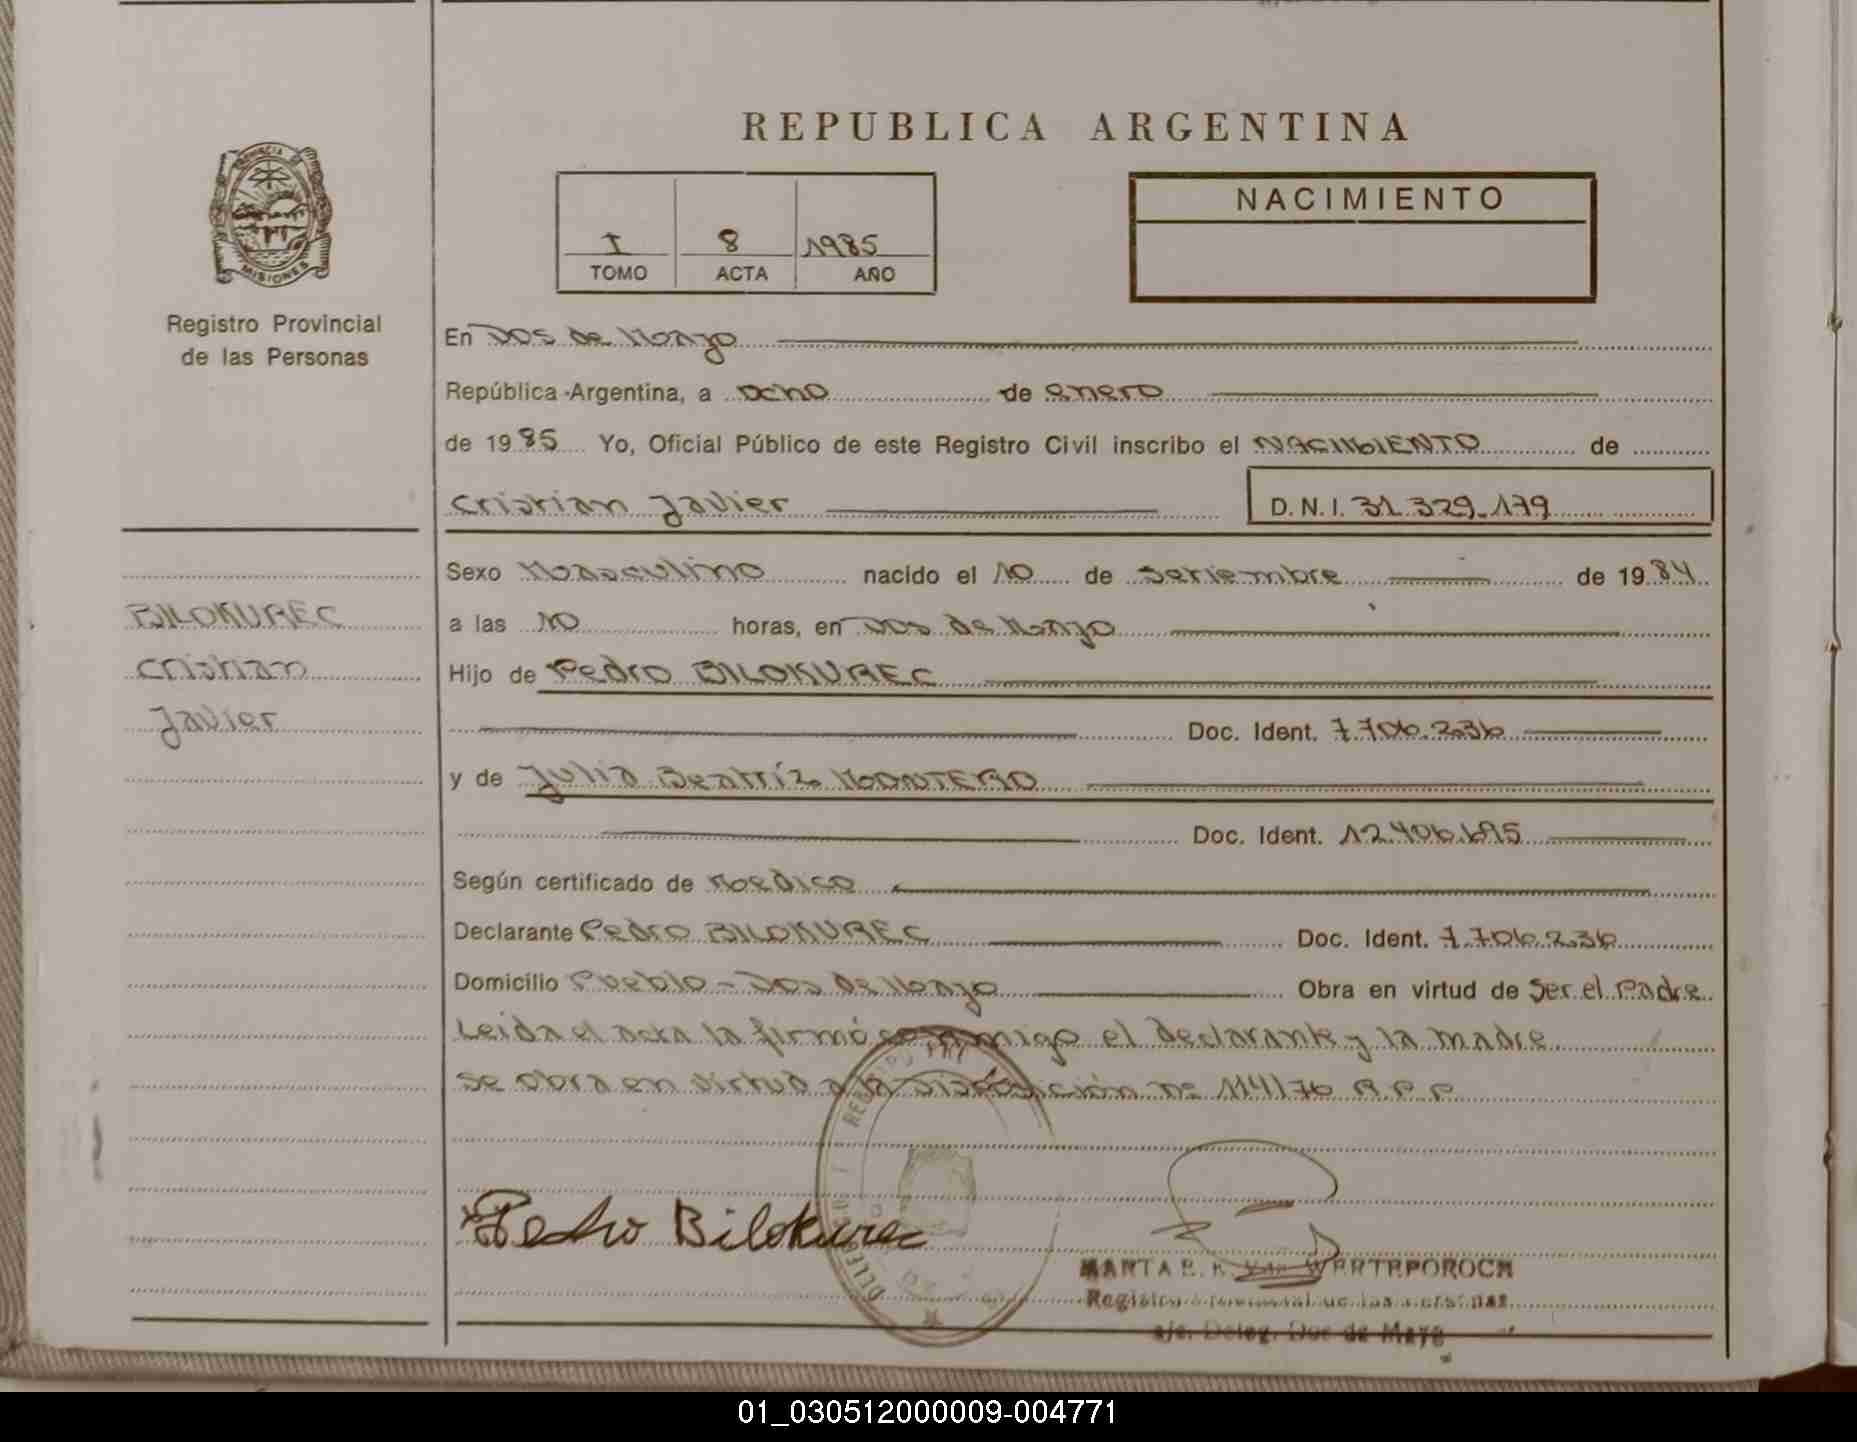 REPUBLICA ARGENTINA
PROVINCIA DE
MISIONES
Registro Provincial
de las Personas
I 8 1985
TOMO ACTA AÑO
NACIMIENTO
En Dos de Mayo
República Argentina, a ocho de enero
de 1985 Yo, Oficial Público de este Registro Civil inscribo el NACIMIENTO de
Cristian Javier D.N.I. 31.329.179
Sexo Masculino nacido el 10 de Setiembre de 1984
a las 10 horas, en Dos de Mayo
BILOKUREC
Cristian
Javier
Hijo de Pedro BILOKUREC
Doc. Ident. 7.706.236
y de Julia Beatríz MONTERO
Doc. Ident. 12.406.695
Según certificado de Medico
Declarante Pedro BILOKUREC Doc. Ident. 7.706.236
Domicilio Pueblo - Dos de Mayo Obra en virtud de Ser el Padre
Leida el acta la firmó conmigo el declarante y la madre
se obra en virtud a la Disposición nº 114/76 R.P.P
Pedro Bilokurec
MARTA E. K. Vda WERTEPOROCH
Registro Provincial de las Personas
a/c. Deleg. Dos de Mayo
01_030512000009-004771